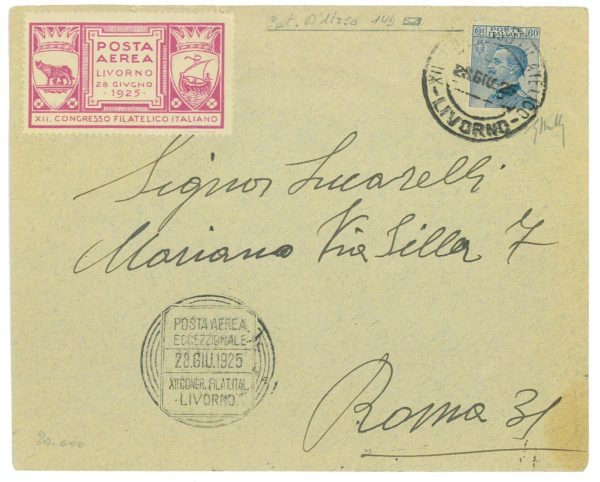 POSTA
AEREA
LIVORNO
28 GIUGNO
1925
XII. CONGRESSO FILATELICO ITALIANO
Cat. D'Urso 149
60
28 GIU. 25
XII
LIVORNO
Signor Lucarelli
Mariano Via Silla 7
POSTA AEREA
ECCEZZIONALE
28.GIU.1925
XII CONGR. FILAT. ITAL.
-LIVORNO-
Roma 31
20.000